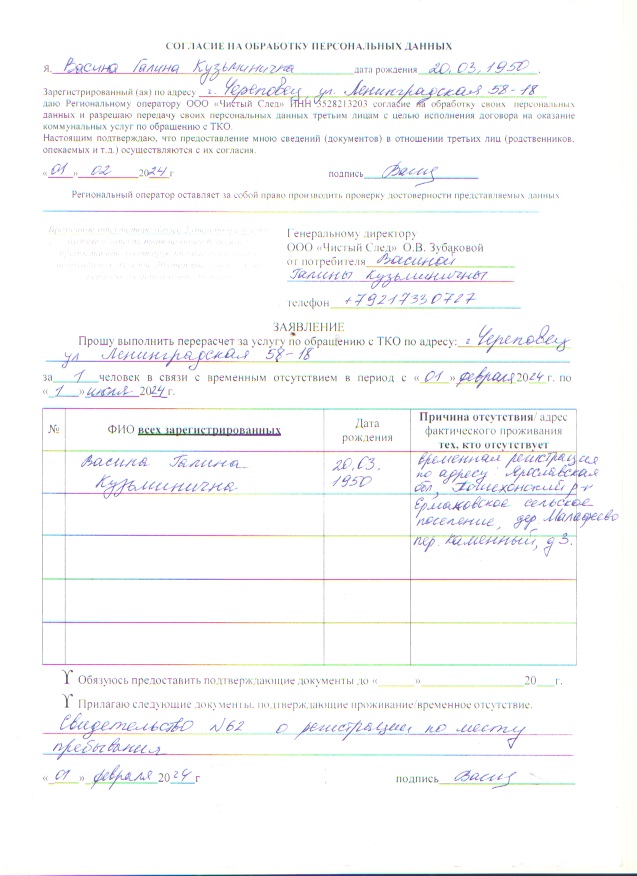 СОГЛАСИЕ НА ОБРАБОТКУ ПЕРСОНАЛЬНЫХ ДАННЫХ
Я, Васина Галина Кузьминична дата рождения 20.03.1950.
Зарегистрированный (ая) по адресу г. Череповец, ул. Ленинградская 58-18
даю Региональному оператору ООО «Чистый След» ИНН 3528213203 согласие на обработку своих персональных
данных и разрешаю передачу своих персональных данных третьим лицам с целью исполнения договора на оказание
коммунальных услуг по обращению с ТКО.
Настоящим подтверждаю, что предоставление мною сведений (документов) в отношении третьих лиц (родственников,
опекаемых и т.д.) осуществляются с их согласия.
«01» 02 2024г подпись Васин
Региональный оператор оставляет за собой право производить проверку достоверности представляемых данных
Генеральному директору
ООО «Чистый След» О.В. Зубаковой
от потребителя Васиной
Галины Кузьминичны
телефон +79217330727
ЗАЯВЛЕНИЕ
Прошу выполнить перерасчет за услугу по обращению с ТКО по адресу: г Череповец
ул Ленинградская 58-18
за 1 человек в связи с временным отсутствием в период с «01» февраля 2024 г. по
«1» 2024 г.
№ ФИО всех зарегистрированных Дата рождения Причина отсутствия/ адрес фактического проживания тех, кто отсутствует
Васина Галина 20.03. временная регистрация
Кузьминична 1950 по адресу Ярославская
обл, Пошехонский р-н
Ермаковское сельское
поселение, дер
пер. Каменный, д 3.
Обязуюсь предоставить подтверждающие документы до «______» 20___г.
Прилагаю следующие документы, подтверждающие проживание/временное отсутствие.
Свидетельство N62 о регистрации по месту
пребывания
«01» февраля 2024 г подпись Васин